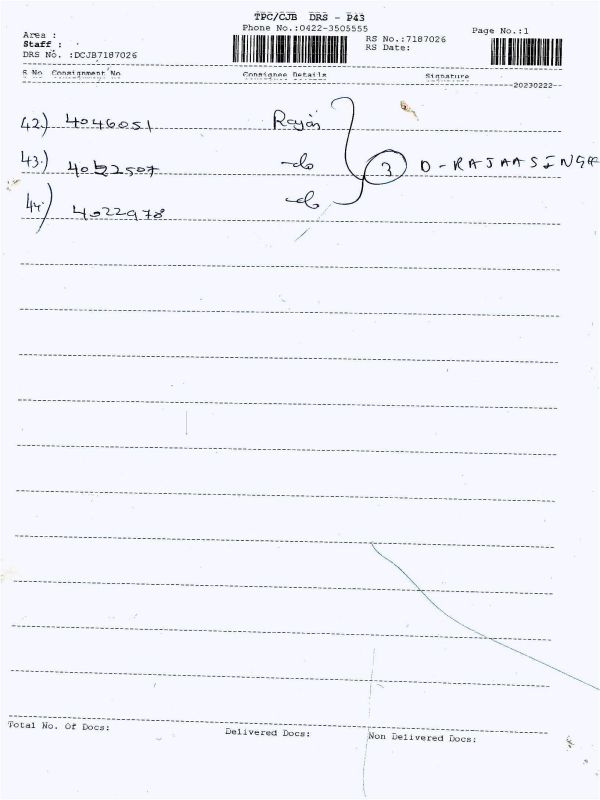 TPC/CJB DRS - P43
Phone No.:0422-3505555
Area :
Staff :
DRS No. :DCJB7187026
RS No.:7187026
RS Date:
Page No.:1
S No Consignment No Consignee Details Signature
20230222
42.) 4046051 Rajan
43.) 4022507 -do 3 D-RAJAASINGH
44.) 4022978 -do
Total No. Of Docs: Delivered Docs: Non Delivered Docs: